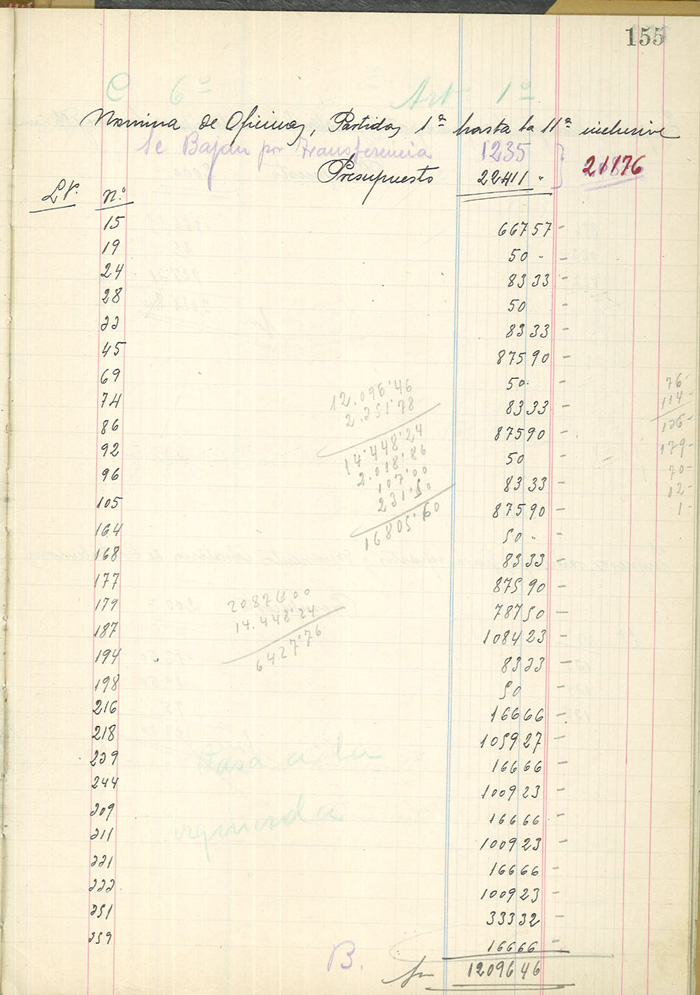 155
C 6º Art 1º
Nomina de Oficinas, Partidas 1ª hasta la 11ª inclusive
Se Bajan por transferencia 1235
Presupuesto 22411 - } 21176
Lr. n.º
15 66757 -
19 50 -
24 8333 -
28 50 -
33 8333 -
45 87590 -
69 50 -
74 8333 -
86 87590 -
92 50 -
96 8333 -
105 87590 -
164 50 -
168 8333 -
177 87590 -
179 78750 -
187 108423 -
194 8333 -
198 50 -
216 16666 -
218 105927 -
239 16666 -
244 100923 -
209 16666 -
211 100923 -
221 16666 -
222 100923 -
251 33332 -
259 16666 -
1209646
12.096.46
2.351.78
14.448.24
2.018.86
107.00
231.50
16805.60
20876.00
14.448.24
6427.76
76-
114-
136-
179-
70-
12-
1-
Pasa a la
izquierda
B.